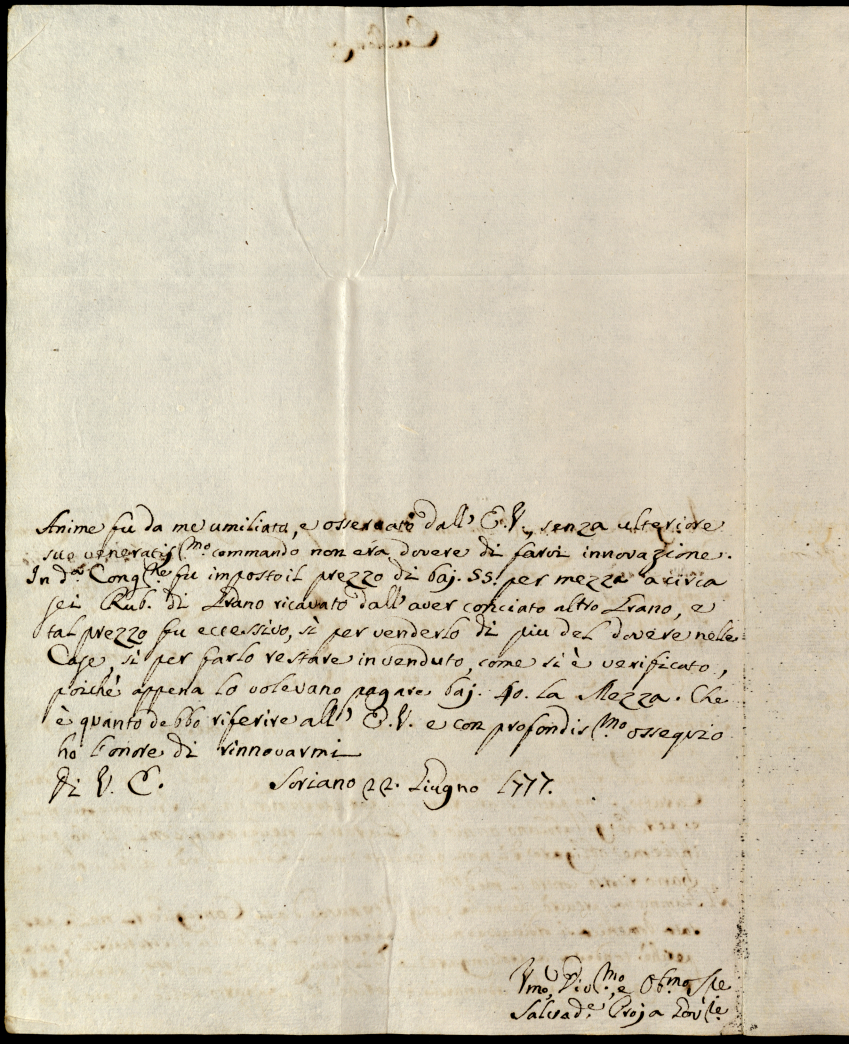 Anime fu da me umiliata, e osservato dall' E.V., senza ulteriore
suo veneratiss.mo commando non era dovere di farvi innovazione.
In d.a Cong.ne fu imposto il prezzo di baj. 55. per mezza a circa
sei Rub. di Grano ricavato dall' aver conciato altro Grano, e
tal prezzo fu eccessivo, sì per venderlo di piu del dovere nelle
Case, sì per farlo restare invenduto, come si è verificato,
poichè appena lo volevano pagare baj. 40. la Mezza. Che
è quanto debbo riferire all' E.V. e con profondis.mo ossequio
ho l'onore di rinnovarmi
Di V. E. Soriano 22. Giugno 1777.
Vmo, Div.mo, e Ob.mo S.re
Salvad.e Proja Gov.re